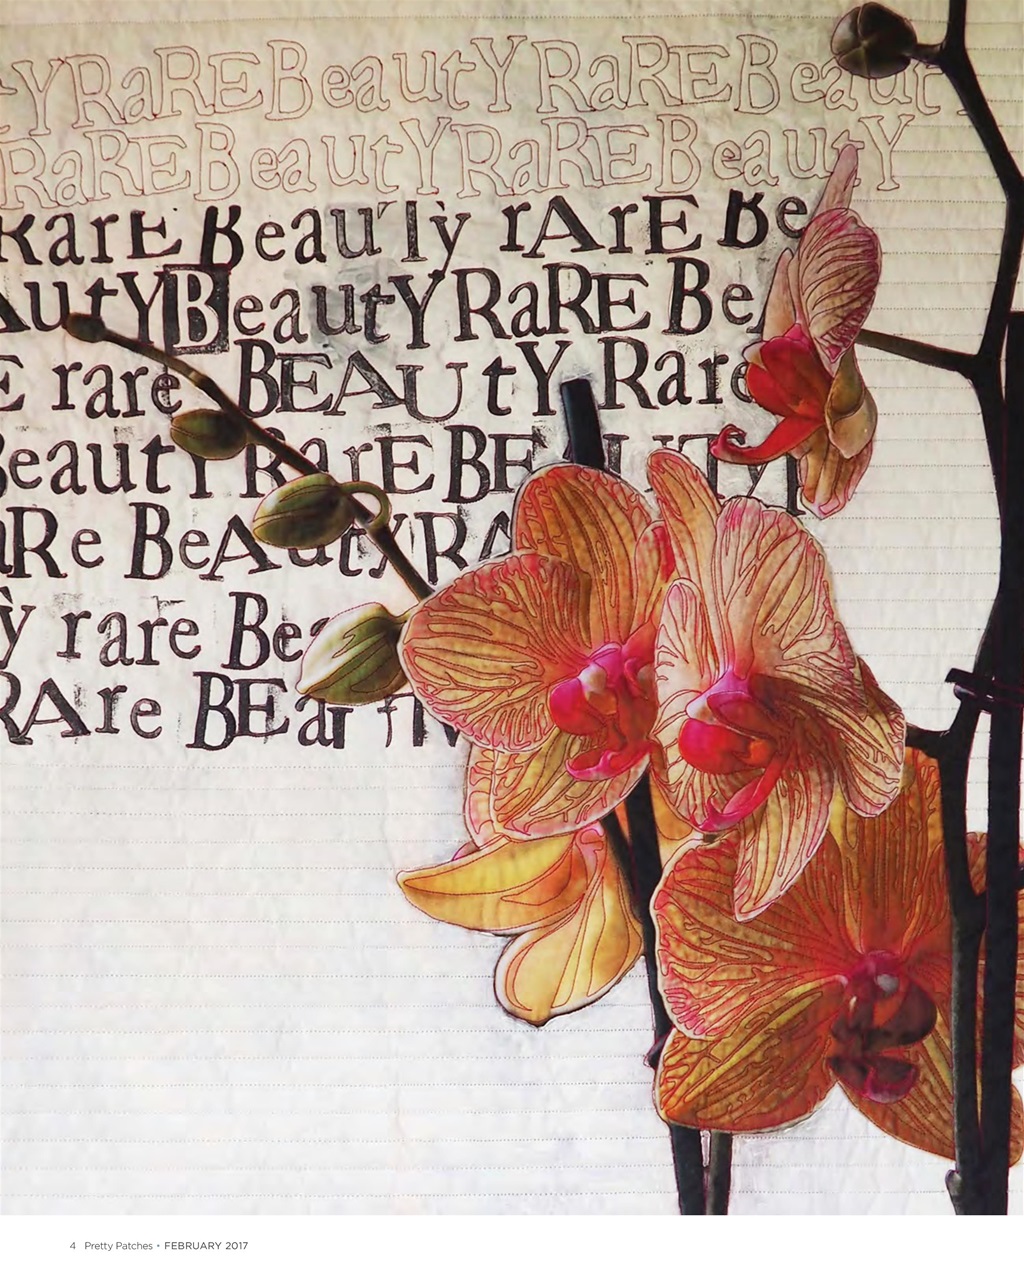 YRaREBeautYRaREBeaut
RaREBeautYRaREBeautY
RarE Beauty rArE Be
AutYBBeautYRaRE Be
E rare BEAUtY Rare
BeautY RarE BEAUTY
aRe BeAutYRA
y rare Bea
RARe BEaut
4 Pretty Patches • FEBRUARY 2017